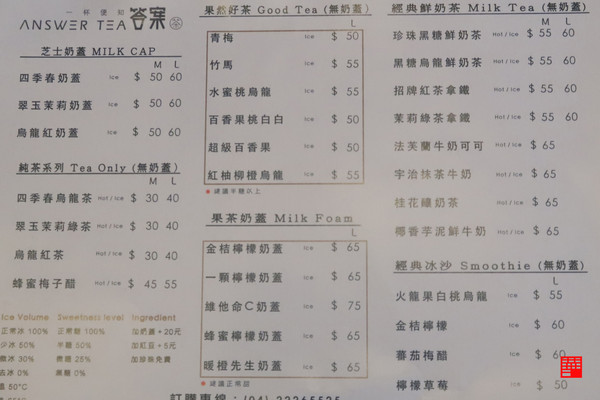 一杯便知
ANSWER TEA 答案 茶
芝士奶蓋 MILK CAP
M L
四季春奶蓋 Ice $ 50 60
翠玉茉莉奶蓋 Ice $ 50 60
烏龍紅奶蓋 Ice $ 50 60
純茶系列 Tea Only (無奶蓋)
M L
四季春烏龍茶 Hot / Ice $ 30 40
翠玉茉莉綠茶 Hot / Ice $ 30 40
烏龍紅茶 Hot / Ice $ 30 40
蜂蜜梅子醋 Hot / Ice $ 45 55
Ice Volume Sweetness level Ingredient
正常冰 100% 正常糖 100% 加奶蓋+20元
少冰 50% 半糖 50% 加紅豆+5元
微冰 30% 微糖 25% 加珍椰免費
去冰 0% 無糖 0%
溫 50°C
果然好茶 Good Tea (無奶蓋)
L
青梅 Ice $ 50
竹馬 Ice $ 55
水蜜桃烏龍 Ice $ 50
百香果桃白白 Ice $ 50
超級百香果 Ice $ 50
紅柚柳橙烏龍 Ice $ 55
建議半糖以上
果茶奶蓋 Milk Foam
L
金桔檸檬奶蓋 Ice $ 65
一顆檸檬奶蓋 Ice $ 65
維他命C奶蓋 Ice $ 75
蜂蜜檸檬奶蓋 Ice $ 65
暖橙先生奶蓋 Ice $ 65
建議正常甜
訂購專線：(04) 22265525
經典鮮奶茶 Milk Tea (無奶蓋)
M L
珍珠黑糖鮮奶茶 Hot / Ice $ 55 60
黑糖烏龍鮮奶茶 Hot / Ice $ 55 60
招牌紅茶拿鐵 Hot / Ice $ 55 60
茉莉綠茶拿鐵 Hot / Ice $ 55 60
法芙蘭牛奶可可 Hot / Ice $ 65
宇治抹茶牛奶 Hot / Ice $ 65
桂花釀奶茶 Hot / Ice $ 65
椰香芋泥鮮牛奶 Hot / Ice $ 65
經典冰沙 Smoothie (無奶蓋)
L
火龍果白桃烏龍 Ice $ 55
金桔檸檬 Ice $ 60
蕃茄梅醋 Ice $ 60
檸檬草莓 Ice $ 50